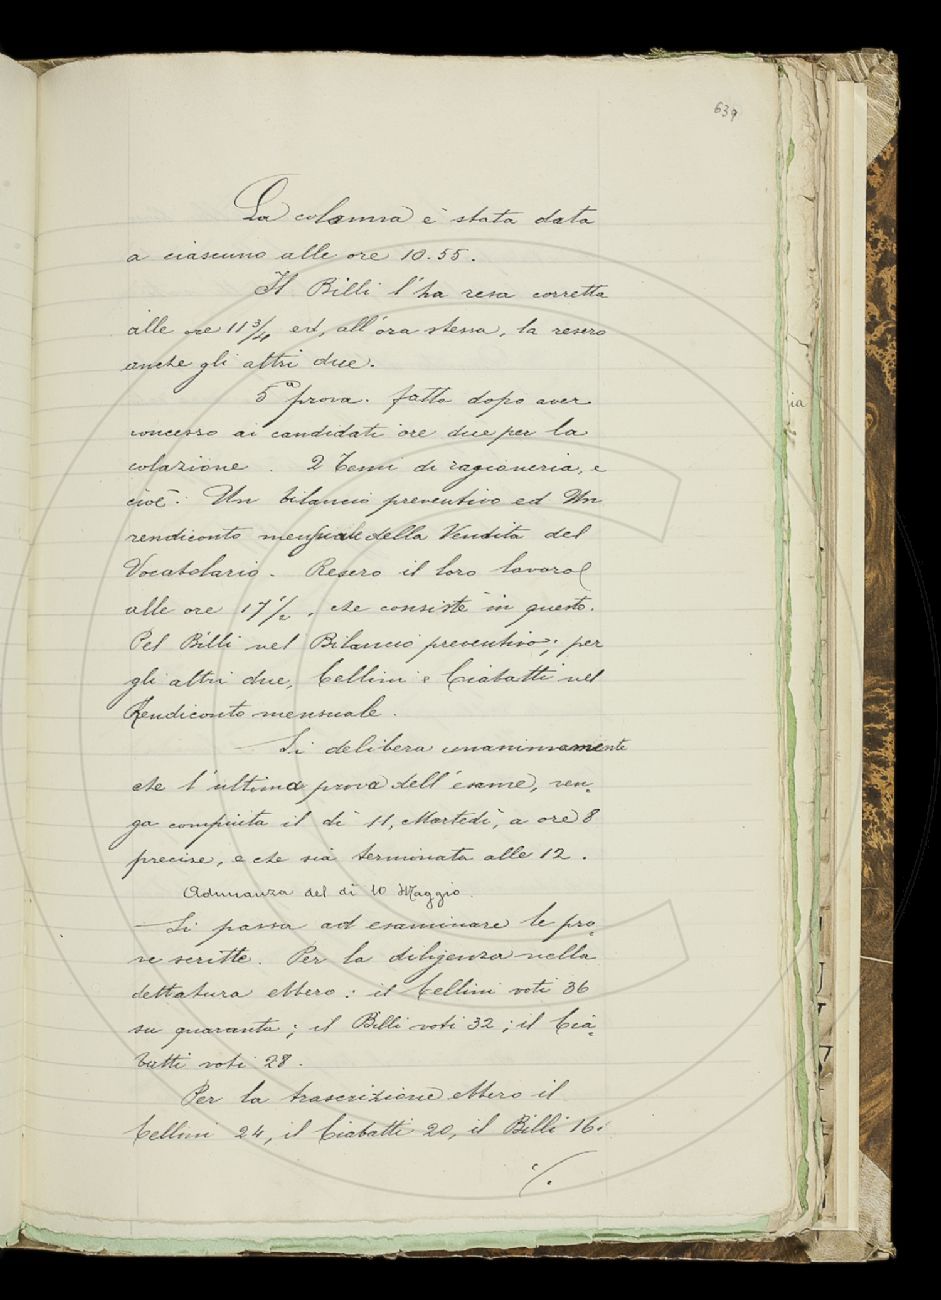 639
La colonna è stata data
a ciascuno alle ore 10.55.
Il Billi l'ha resa corretta
alle ore 11 3/4 ed, all'ora stessa, la resero
anche gli altri due.
5ª prova. fatta dopo aver
concesso ai candidati ore due per la
colazione. 2 Temi di ragioneria, e
cioè: Un bilancio preventivo ed Un
rendiconto mensuale della Vendita del
Vocabolario. Resero il loro lavoro
alle ore 17 1/2, che consiste in questo.
Pel Billi nel Bilancio preventivo; per
gli altri due, Cellini e Ciabatti nel
Rendiconto mensuale.
— Si delibera unanimamente
che l'ultima prova dell'esame, ven-
ga compiuta il dì 11, Martedì, a ore 8
precise, e che sia terminata alle 12.
Adunanza del dì 10 Maggio.
— Si passa ad esaminare le pro-
ve scritte. Per la diligenza nella
dettatura ebbero: il Cellini voti 36
su quaranta; il Billi voti 32; il Cia-
batti voti 28.
Per la trascrizione ebbero il
Cellini 24, il Ciabatti 20, il Billi 16.
./.
ia